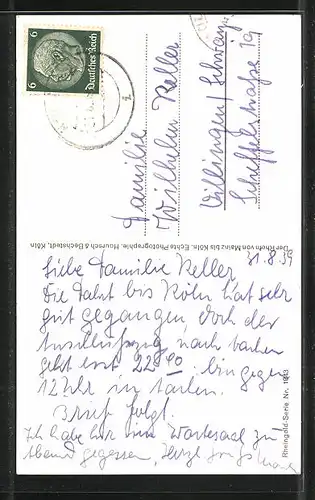 Deutsches Reich
6 6
Familie
Wilhelm Keller
Villingen/Schwarzw.
Scheffelstraße 19
Der Rhein von Mainz bis Köln. Echte Photographie. Hoursch & Bechstedt, Köln
Rheingold-Serie Nr. 1943
31.8.39
Liebe Familie Keller,
Die Fahrt bis Köln hat sehr
gut gegangen, doch der
Anschlusszug nach Aachen
geht erst 22 bin gegen
12 Uhr in Aachen.
Brief folgt.
Ich habe hier im Wartesaal zu
Abend gegessen, Herzl.